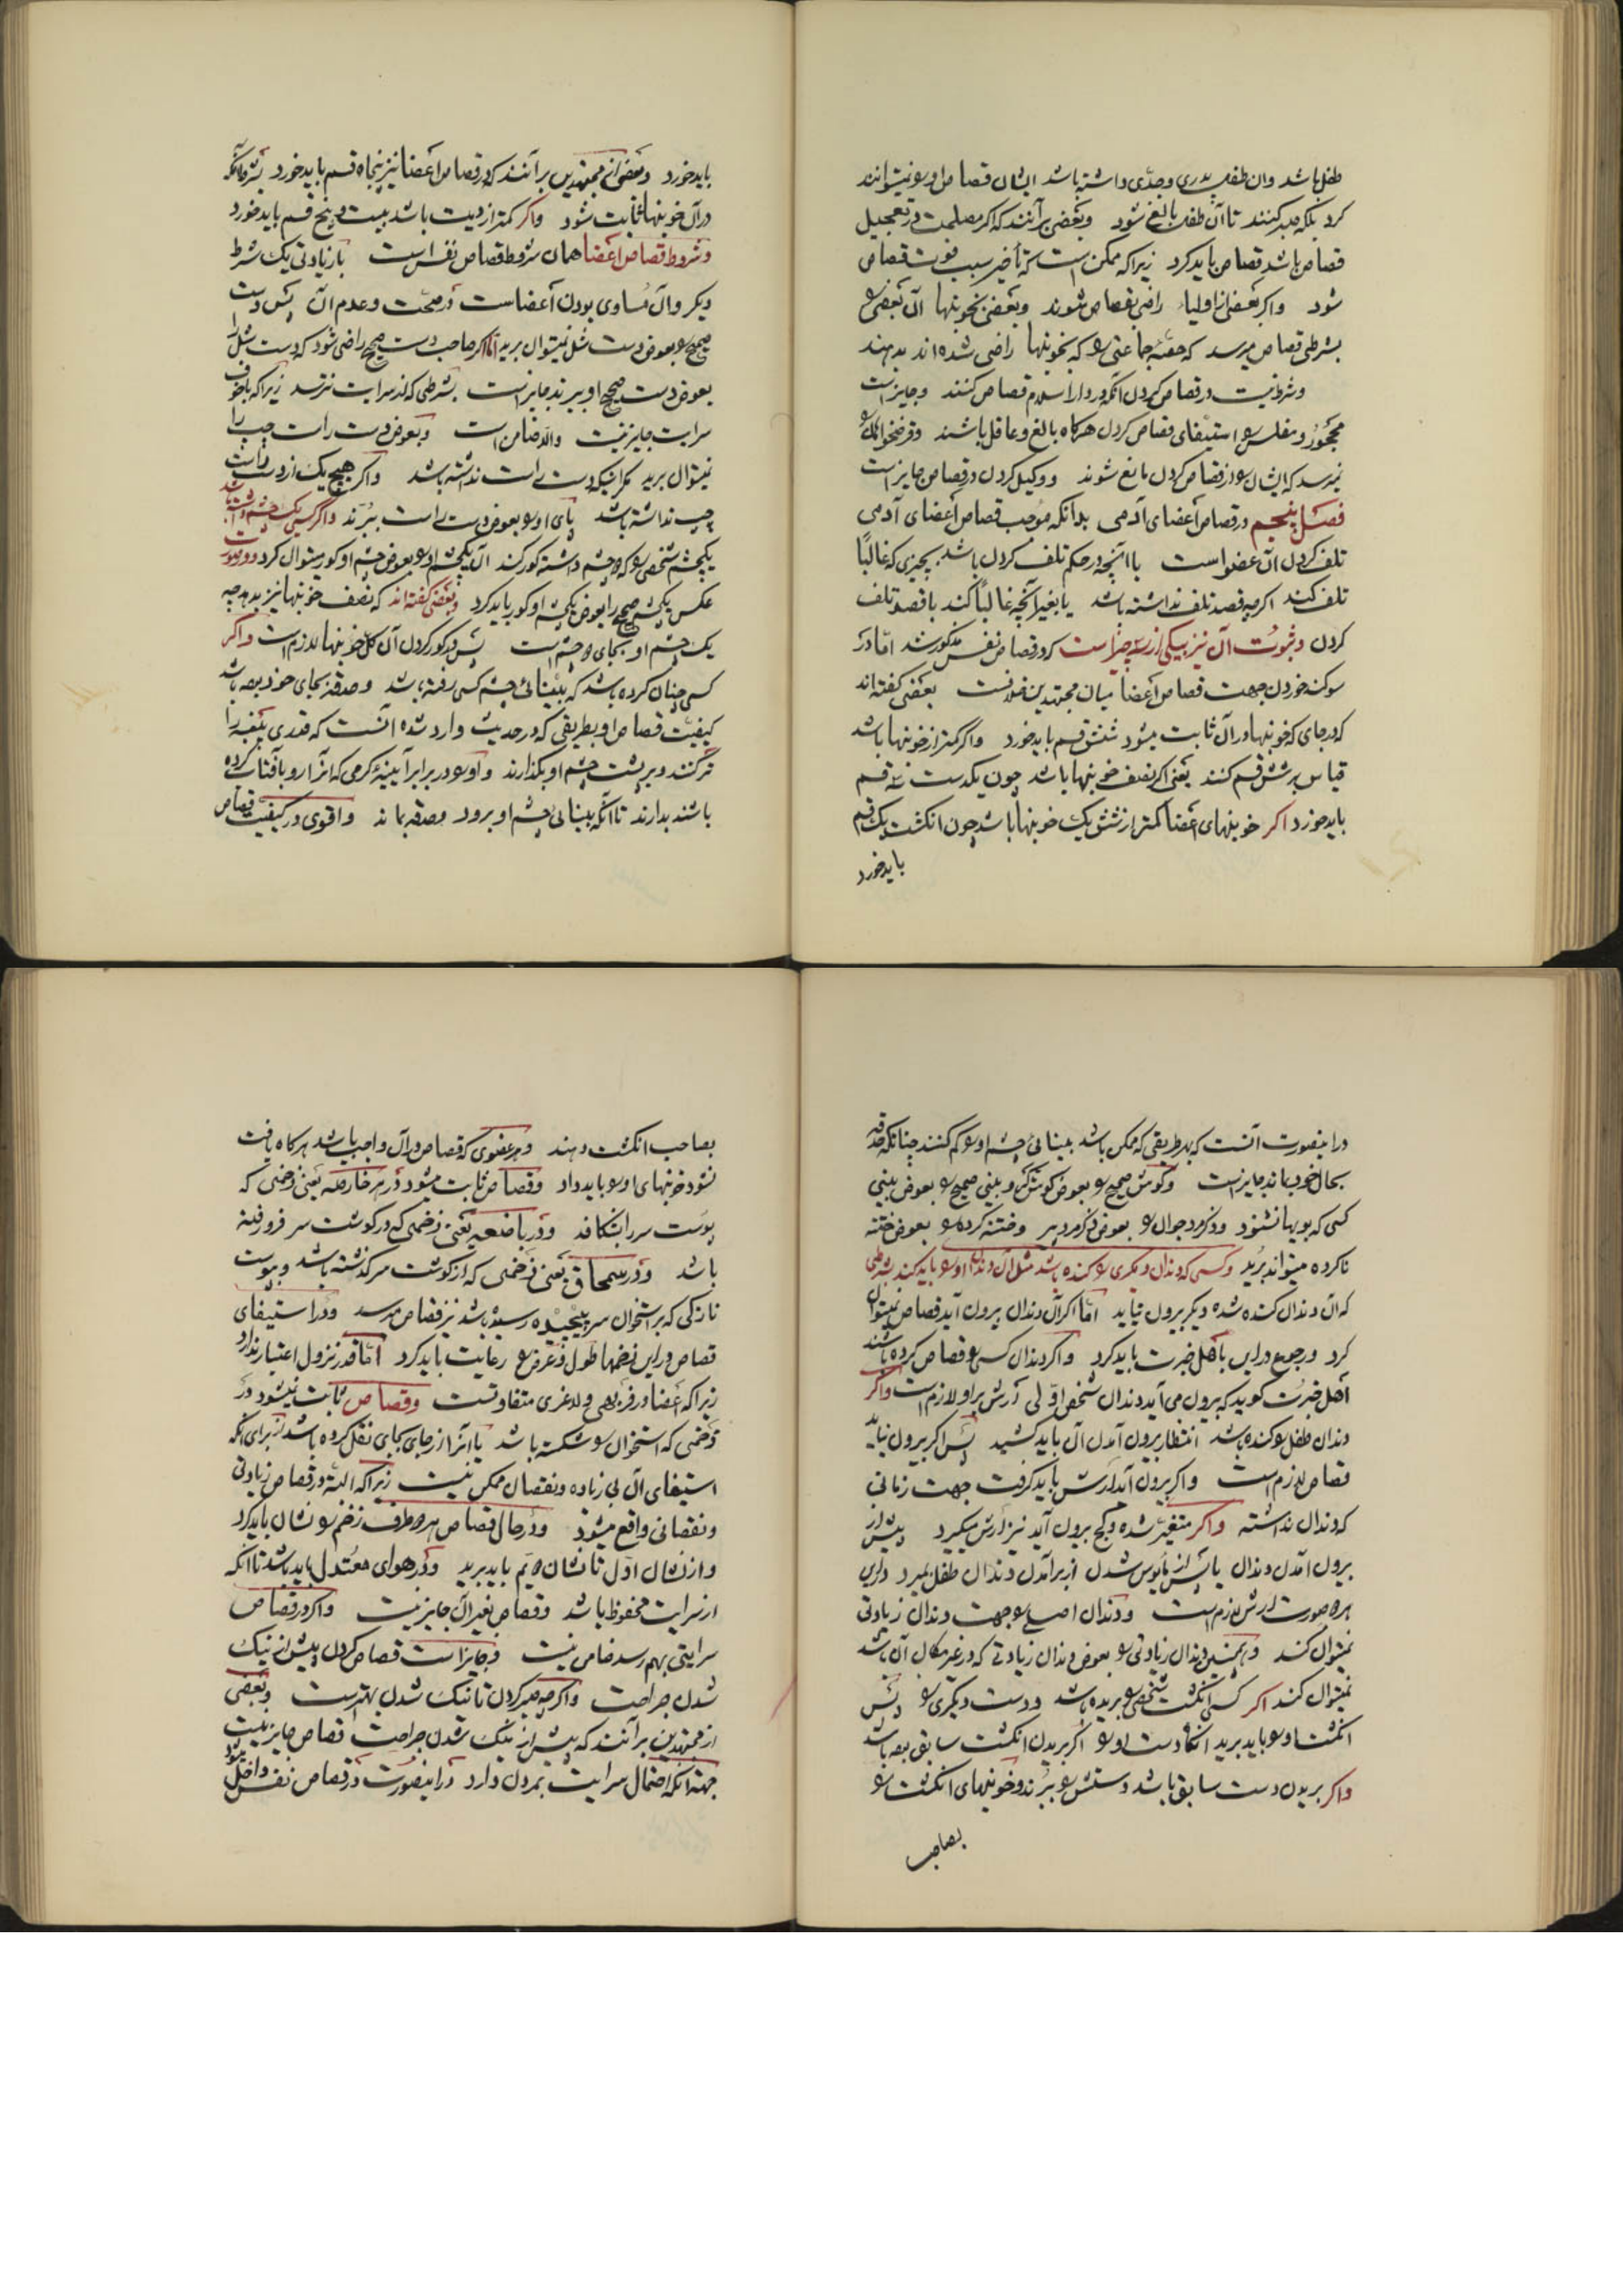 طفل باشد وآن طفل پدری وجدّی داشته باشد ایشان قصاص اورا نمیتوانند
کرد بلکه صبر کنند تا آن طفل بالغ شود وبعضی برآنند که اکر مصلحت در تعجیل
قصاص باشد قصاص باید کرد زیرا که ممکن است که تأخیر سبب فوت قصاص
شود واکر بعضی از اولیاء راضی بقصاص شوند وبعضی بخونبها آن بعضی را
بشرطی قصاص میرسد که حصّهٔ جماعتی را که بخونبها راضی شده اند بدهند
وشرط نیست در قصاص کردن آنکه در دار اسلام قصاص کنند وجایز است
محجور ومفلس را استیفای قصاص کردن هرکاه بالغ وعاقل باشند وقرضخواهان را
نمیرسد که ایشان را از قصاص کردن مانع شوند ووکیل کردن در قصاص جایز است
فصل پنجم در قصاص أعضای آدمی بدانکه موجب قصاص أعضای آدمی
تلف کردن آن عضو است یا آنچه در حکم تلف کردن باشد بچیزی که غالبًا
تلف کند اکرچه قصد تلف نداشته باشد یا بغیر آنچه غالبًا تلف کند با قصد تلف
کردن وثبوت آن نیز بیکی از سه چیز است که در قصاص نفس مذکور شد امّا در
سوکند خوردن جهت قصاص أعضا میان مجتهدین خلافست بعضی کفته اند
که در جای که خونبها در آن ثابت میشود شش قسم باید خورد واکر کمتر از خونبها باشد
قیاس بر شش قسم کنند یعنی اکر نصف خونبها باشد چون یکدست سه قسم
باید خورد اکر خونبهای أعضا کمتر از شش یک خونبها باشد چون انکشت یک قسم
باید خورد
باید خورد وبعضی از مجتهدین برآنند که در قصاص أعضا نیز پنجاه قسم باید خورد بشرط آنکه
در آن خونبها ثابت شود واکر کمتر از دیت باشد بیست وپنج قسم باید خورد
وشروط قصاص أعضا همان شروط قصاص نفس است با زیادتی یک شرط
دیکر وآن مساوی بودن أعضاست در صحّت وعدم آن پس دست
صحیح را بعوض دست شل نمیتوان برید امّا اکر صاحب دست صحیح راضی شود که دست شل را
بعوض دست صحیح او ببرند جایز است بشرطی که از سرایت نترسد زیرا که با خوف
سرایت جایز نیست والّا ضامن است وبعوض دست راست چپ را
نمیتوان برید مکر آنکه دست راست نداشته باشد واکر هیچ یک از دست راست
چپ نداشته باشد پای اورا بعوض دست راست ببرند واکر کسی یک چشم داشته باشد
یکچشم شخصی را که دو چشم داشته کور کند آن یکچشم اورا بعوض چشم او کور میتوان کرد ودر صورت
عکس یکچشم صحیح را بعوض یکچشم او کور باید کرد وبعضی کفته اند که نصف خونبها نیز بدهد چه
یک چشم او بجای دو چشم است پس در کور کردن آن کل خونبها لازم است واکر
کسی چنان کرده باشد که بینائی چشم کسی رفته باشد وحدقه بجای خود بوده باشد
کیفیّت قصاص او بطریقی که در حدیث وارد شده آنست که قدری پنبه را
تر کنند وبر پشت چشم او بکذارند واورا در برابر آیینهٔ کرمی که آنرا رو بآفتاب کرده
باشند بدارند تا آنکه بینائی چشم او برود وحدقه بماند واقوی در کیفیّت قصاص
درینصورت آنست که بهر طریقی که ممکن باشد بینائی چشم اورا کم کنند چنانکه حدقه
بحال خود بماند جایز است وکوش صحیح را بعوض کوش کر وبینی صحیح را بعوض بینی
کسی که بویها نشنود وذکر مرد جوان را بعوض ذکر مرد پیر وختنه کرده را بعوض ختنه
ناکرده میتواند برید وکسی که دندان دیکری را کنده باشد مثل آن دندان اورا باید کند بشرطی
که آن دندان کنده شده دیکر بیرون نیاید امّا اکر آن دندان بیرون آید قصاص نمیتوان
کرد ورجوع در این باهل خبرت باید کرد واکر دندان کسی را قصاص کرده باشند
أهل خبرت کوید که بیرون می آید دندان شخص اوّلی أرش بر او لازم است واکر
دندان طفل را کنده باشد انتظار بیرون آمدن آن باید کشید پس اکر بیرون نیاید
قصاص لازم است واکر بیرون آید أرش باید کرفت جهت زمانی
که دندان نداشته واکر متغیّر شده وکج بیرون آید نیز أرش میکیرد وپیش از
بیرون آمدن دندان یا پس از مأیوس شدن از بر آمدن دندان طفل بمیرد در این
هر دو صورت أرش لازم است ودندان اصلی را جهت دندان زیادتی
نمیتوان کند وهمچنین دندان زیادتی را بعوض دندان زیادتی که در غیر مکان آن باشد
نمیتوان کند اکر کسی انکشت شخصی را بریده باشد ودست دیکری را پس
انکشت اورا باید برید آنکاه دست اورا اکر بریدن انکشت سابق بوده باشد
واکر بریدن دست سابق باشد دستش را ببرند وخونبهای انکشت را
بصاحب
بصاحب انکشت دهند وهر عضوی که قصاص در آن واجب باشد هرکاه یافت
نشود خونبهای اورا باید داد وقصاص ثابت میشود در خارصه یعنی زخمی که
پوست سر را بشکافد ودر باضعه یعنی زخمی که در کوشت سر فرو رفته
باشد ودر سمحاق یعنی زخمی که از کوشت سر کذشته باشد وبپوست
نازکی که بر استخوان سر پیچیده رسیده باشد نیز قصاص میرسد ودر استیفای
قصاص در این زخمها طول وعرض را رعایت باید کرد امّا قدر نزول اعتبار ندارد
زیرا که أعضا در فربهی ولاغری متفاوتست وقصاص ثابت نمیشود در
زخمی که استخوان را شکسته باشد یا آنرا از جای بجای نقل کرده باشد برای آنکه
استیفای آن بی زیاده ونقصان ممکن نیست زیرا که البتّه در قصاص زیادتی
ونقصانی واقع میشود ودر حال قصاص هر دو طرف زخم را نشان باید کرد
واز نشان اوّل تا نشان دویم باید برید ودر هوای معتدل باید باشد تا آنکه
از سرایت محفوظ باشد وقصاص بغیر آهن جایز نیست واکر در قصاص
سرایتی بهم رسد ضامن نیست وجایز است قصاص کردن پیش از نیک
شدن جراحت واکرچه صبر کردن تا نیک شدن بهتر است وبعضی
از مجتهدین برآنند که پیش از نیک شدن جراحت قصاص جایز نیست
جهة آنکه احتمال سرایت بمردن دارد درینصورت در قصاص نفس داخل میشود